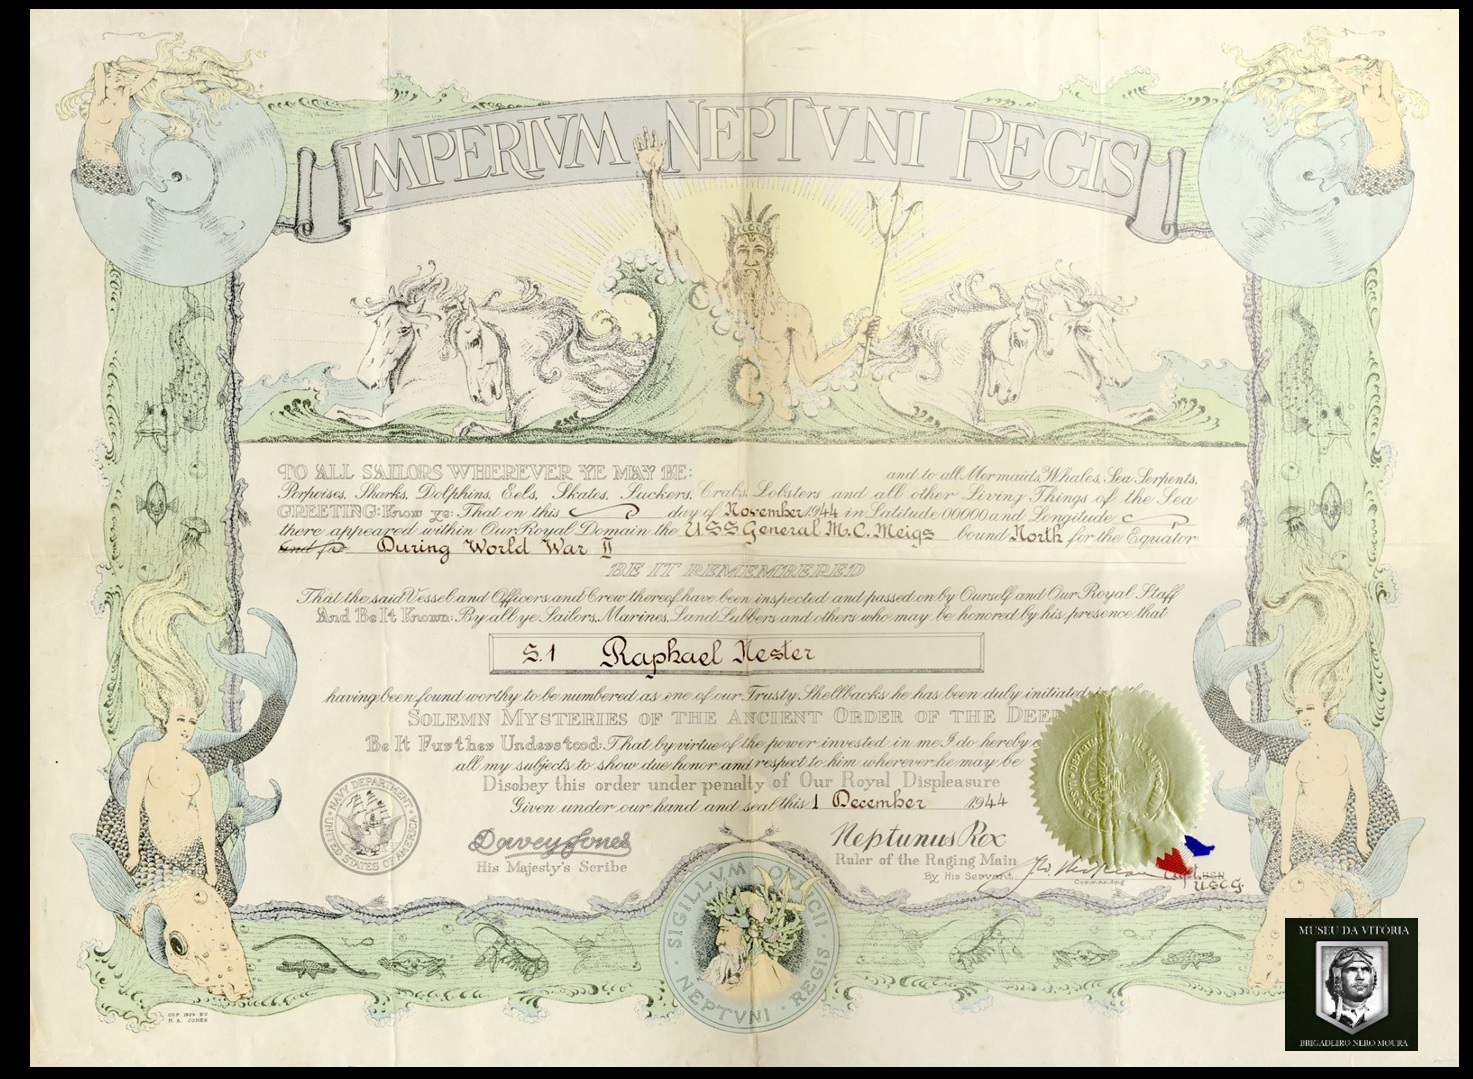 IMPERIVM NEPTVNI REGIS
TO ALL SAILORS WHEREVER YE MAY BE: and to all Mermaids, Whales, Sea Serpents,
Porpoises, Sharks, Dolphins, Eels, Skates, Suckers, Crabs, Lobsters and all other Living Things of the Sea
GREETING: Know ye: That on this day of November 1944 in Latitude 00000 and Longitude
there appeared within Our Royal Domain the U S S General M. C. Meigs bound North for the Equator
and for During World War II
BE IT REMEMBERED
That the said Vessel and Officers and Crew thereof have been inspected and passed on by Ourself and Our Royal Staff
And Be It Known: By all ye Sailors, Marines, Land Lubbers and others who may be honored by his presence that
S.1 Raphael Nester
having been found worthy to be numbered as one of our Trusty Shellbacks he has been duly initiated
SOLEMN MYSTERIES OF THE ANCIENT ORDER OF THE DEEP
Be It Further Understood: That by virtue of the power invested in me I do hereby
all my subjects to show due honor and respect to him wherever he may be
Disobey this order under penalty of Our Royal Displeasure
Given under our hand and seal this 1 December 1944
NAVY DEPARTMENT
UNITED STATES OF AMERICA
Davey Jones
His Majesty's Scribe
Neptunus Rex
Ruler of the Raging Main
By His Servant
Commanding
U.S.C.G.
SIGILLVM OFFICII
NEPTVNI REGIS
COP. BY
H. A. JONES
MUSEU DA VITÓRIA
BRIGADEIRO NERO MOURA